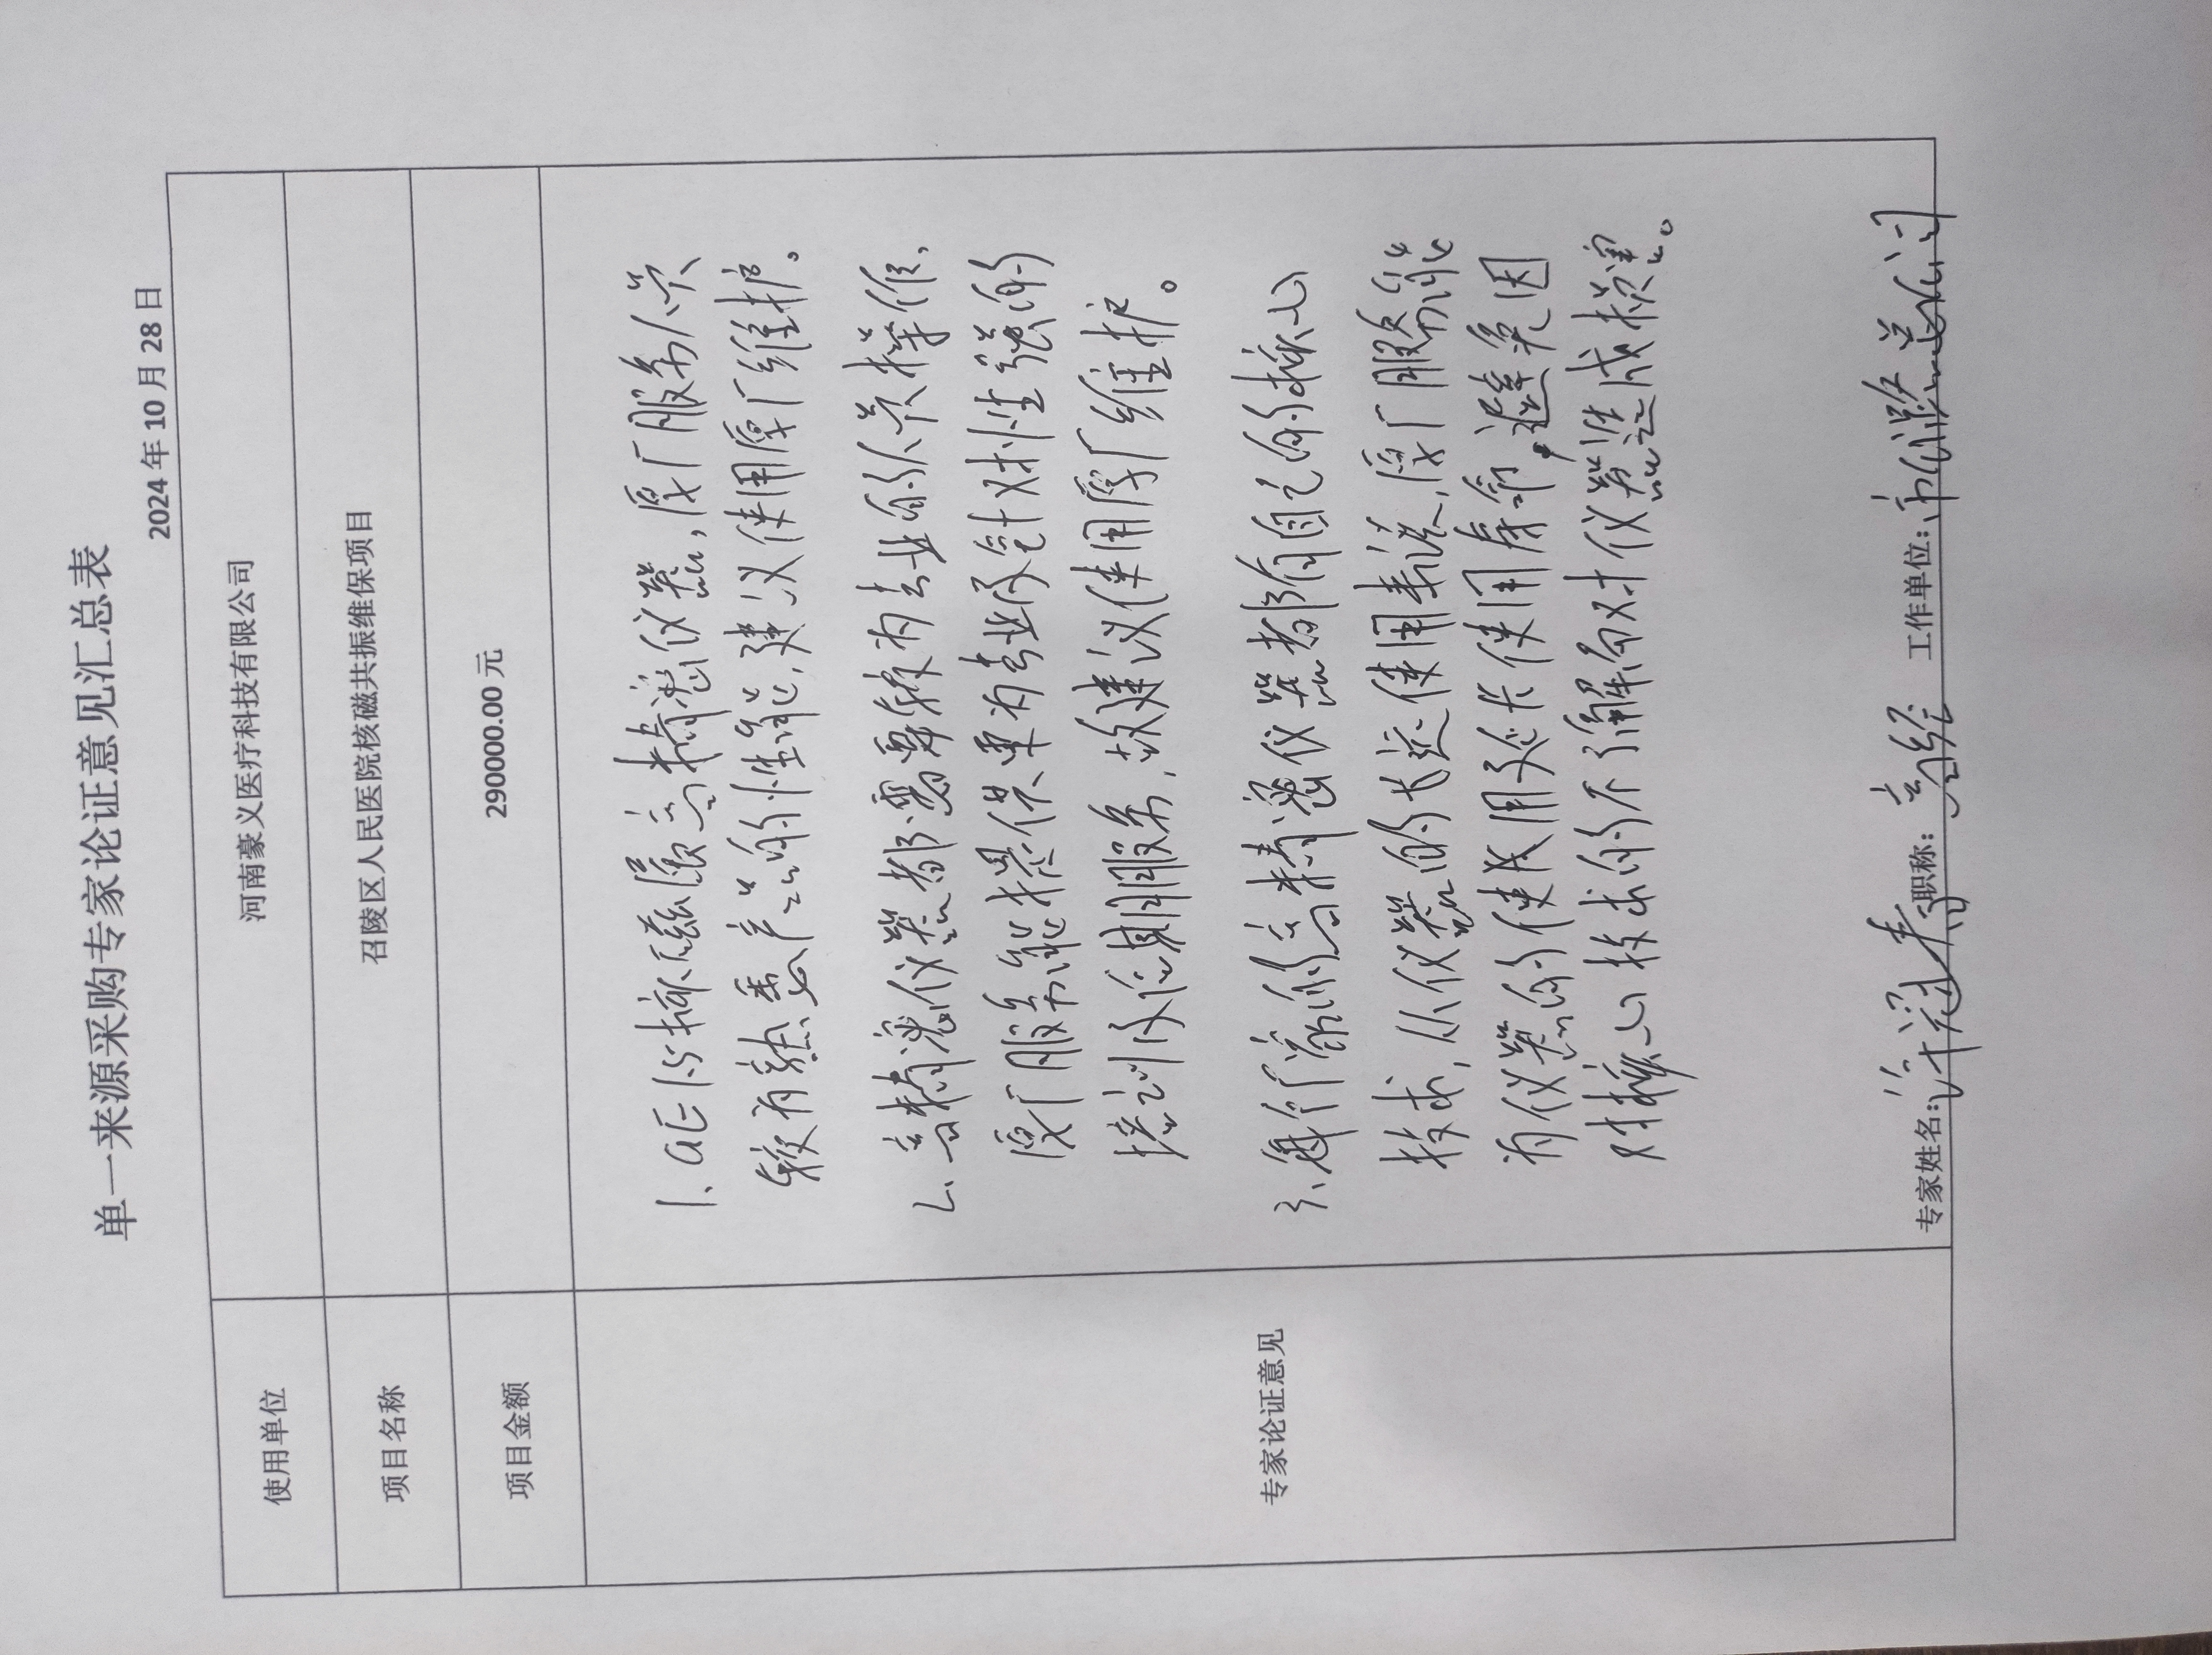 单一来源采购专家论证意见汇总表
2024 年 10 月 28 日
使用单位 河南豪义医疗科技有限公司
项目名称 召陵区人民医院核磁共振维保项目
项目金额 290000.00 元
专家论证意见
1、GE 1.5核磁属高精密仪器,原厂服务人员
较为熟悉产品的性能,建议使用原厂维护。
2、高精密仪器都需要较为专业的人员操作、
原厂服务能提供更为专业及针对性强的
培训及后期服务,故建议使用原厂维护。
3、每个厂商的高精密仪器都有自己的核心
技术,从仪器的长远使用来说,原厂服务能
为仪器的使用延长使用寿命,避免因
对核心技术的不了解而对仪器造成损害。
专家姓名: 职称:高经 工作单位: